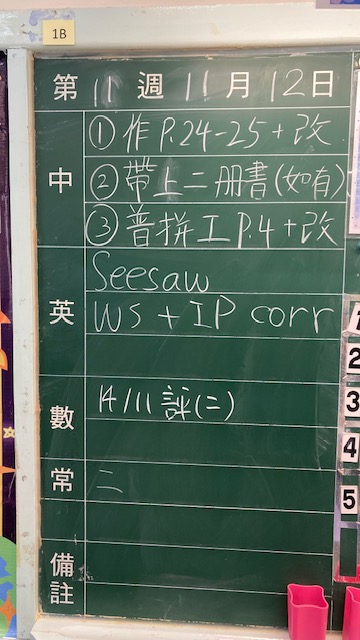 1B
第 11 週 11 月 12 日
中
① 作 P.24-25 + 改
② 帶上二冊書(如有)
③ 普拼工 P.4 + 改
英
Seesaw
WS + IP corr
數
14/11 評(二)
常
二
備註
1
2
3
4
5